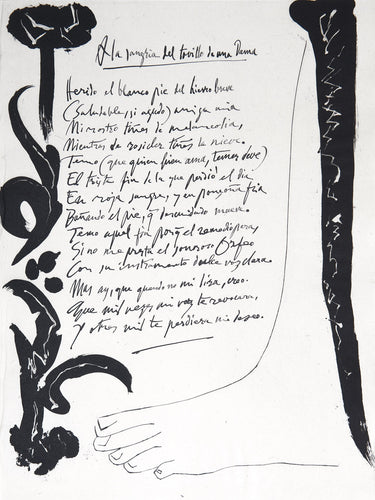 A la sangria del tovillo de una Dama
Herido el blanco pie del hierro breve
(Saludable, si agudo) amiga mia
Mi rostro tiñes de melancolia,
Mientras de rosicler tiñes la nieve.
Temo (que quien bien ama, temer deve)
El triste fin de la que perdió el dia
En roja sangre, y en ponçoña fria
Bañado el pie, q descuidado mueve.
Temo aquel fin porq el remedio para,
Si no me presta el sonoroso Orfeo
Con su instrumento dulce su voz clara.
Mas ay, que quando no mi lira, creo
Que mil vezes mi voz te revocara,
y otras mil te perdiera mi deseo.